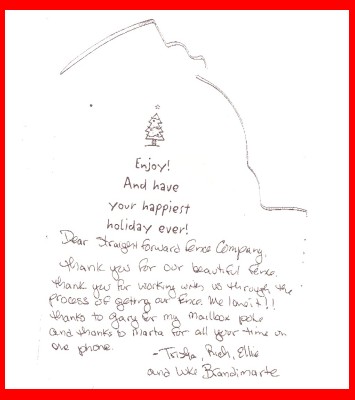 Enjoy!
And have
your happiest
holiday ever!
Dear Straight forward fence Company,
thank you for our beautiful fence.
thank you for working with us through the
process of getting our fence. We love it!!
thanks to gary for my mailbox
and thanks to Marta for all your time on
the phone.
-Trisha, Rich, Ellie
and Luke Brandimarte